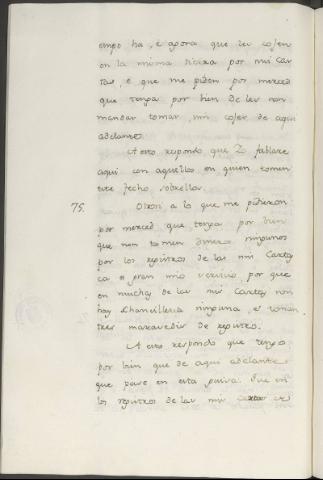 empo ha, e agora que les cojen
en la misma tierra por mis Car
tas, e que me piden por merced
que tenga por bien de les non
mandar tomar, nin cojer de aqui
adelante.
A esto respondo que Yo fablare
aqui con aquellos en quien tomen
este fecho sobrello.
75. Otrosi a lo que me pidieron
por merced que tenga por bien
que non tomen dineros ningunos
por los registros de las mis Cartas
ca es gran mio servicio, por que
en muchas de las mis Cartas non
hay Chancilleria ninguna, e toman
tres maravedis de registro.
A esto respondo que tengo
por bien que de aqui adelante
que pase en esta guisa. Que en
los registros de las mis cartas